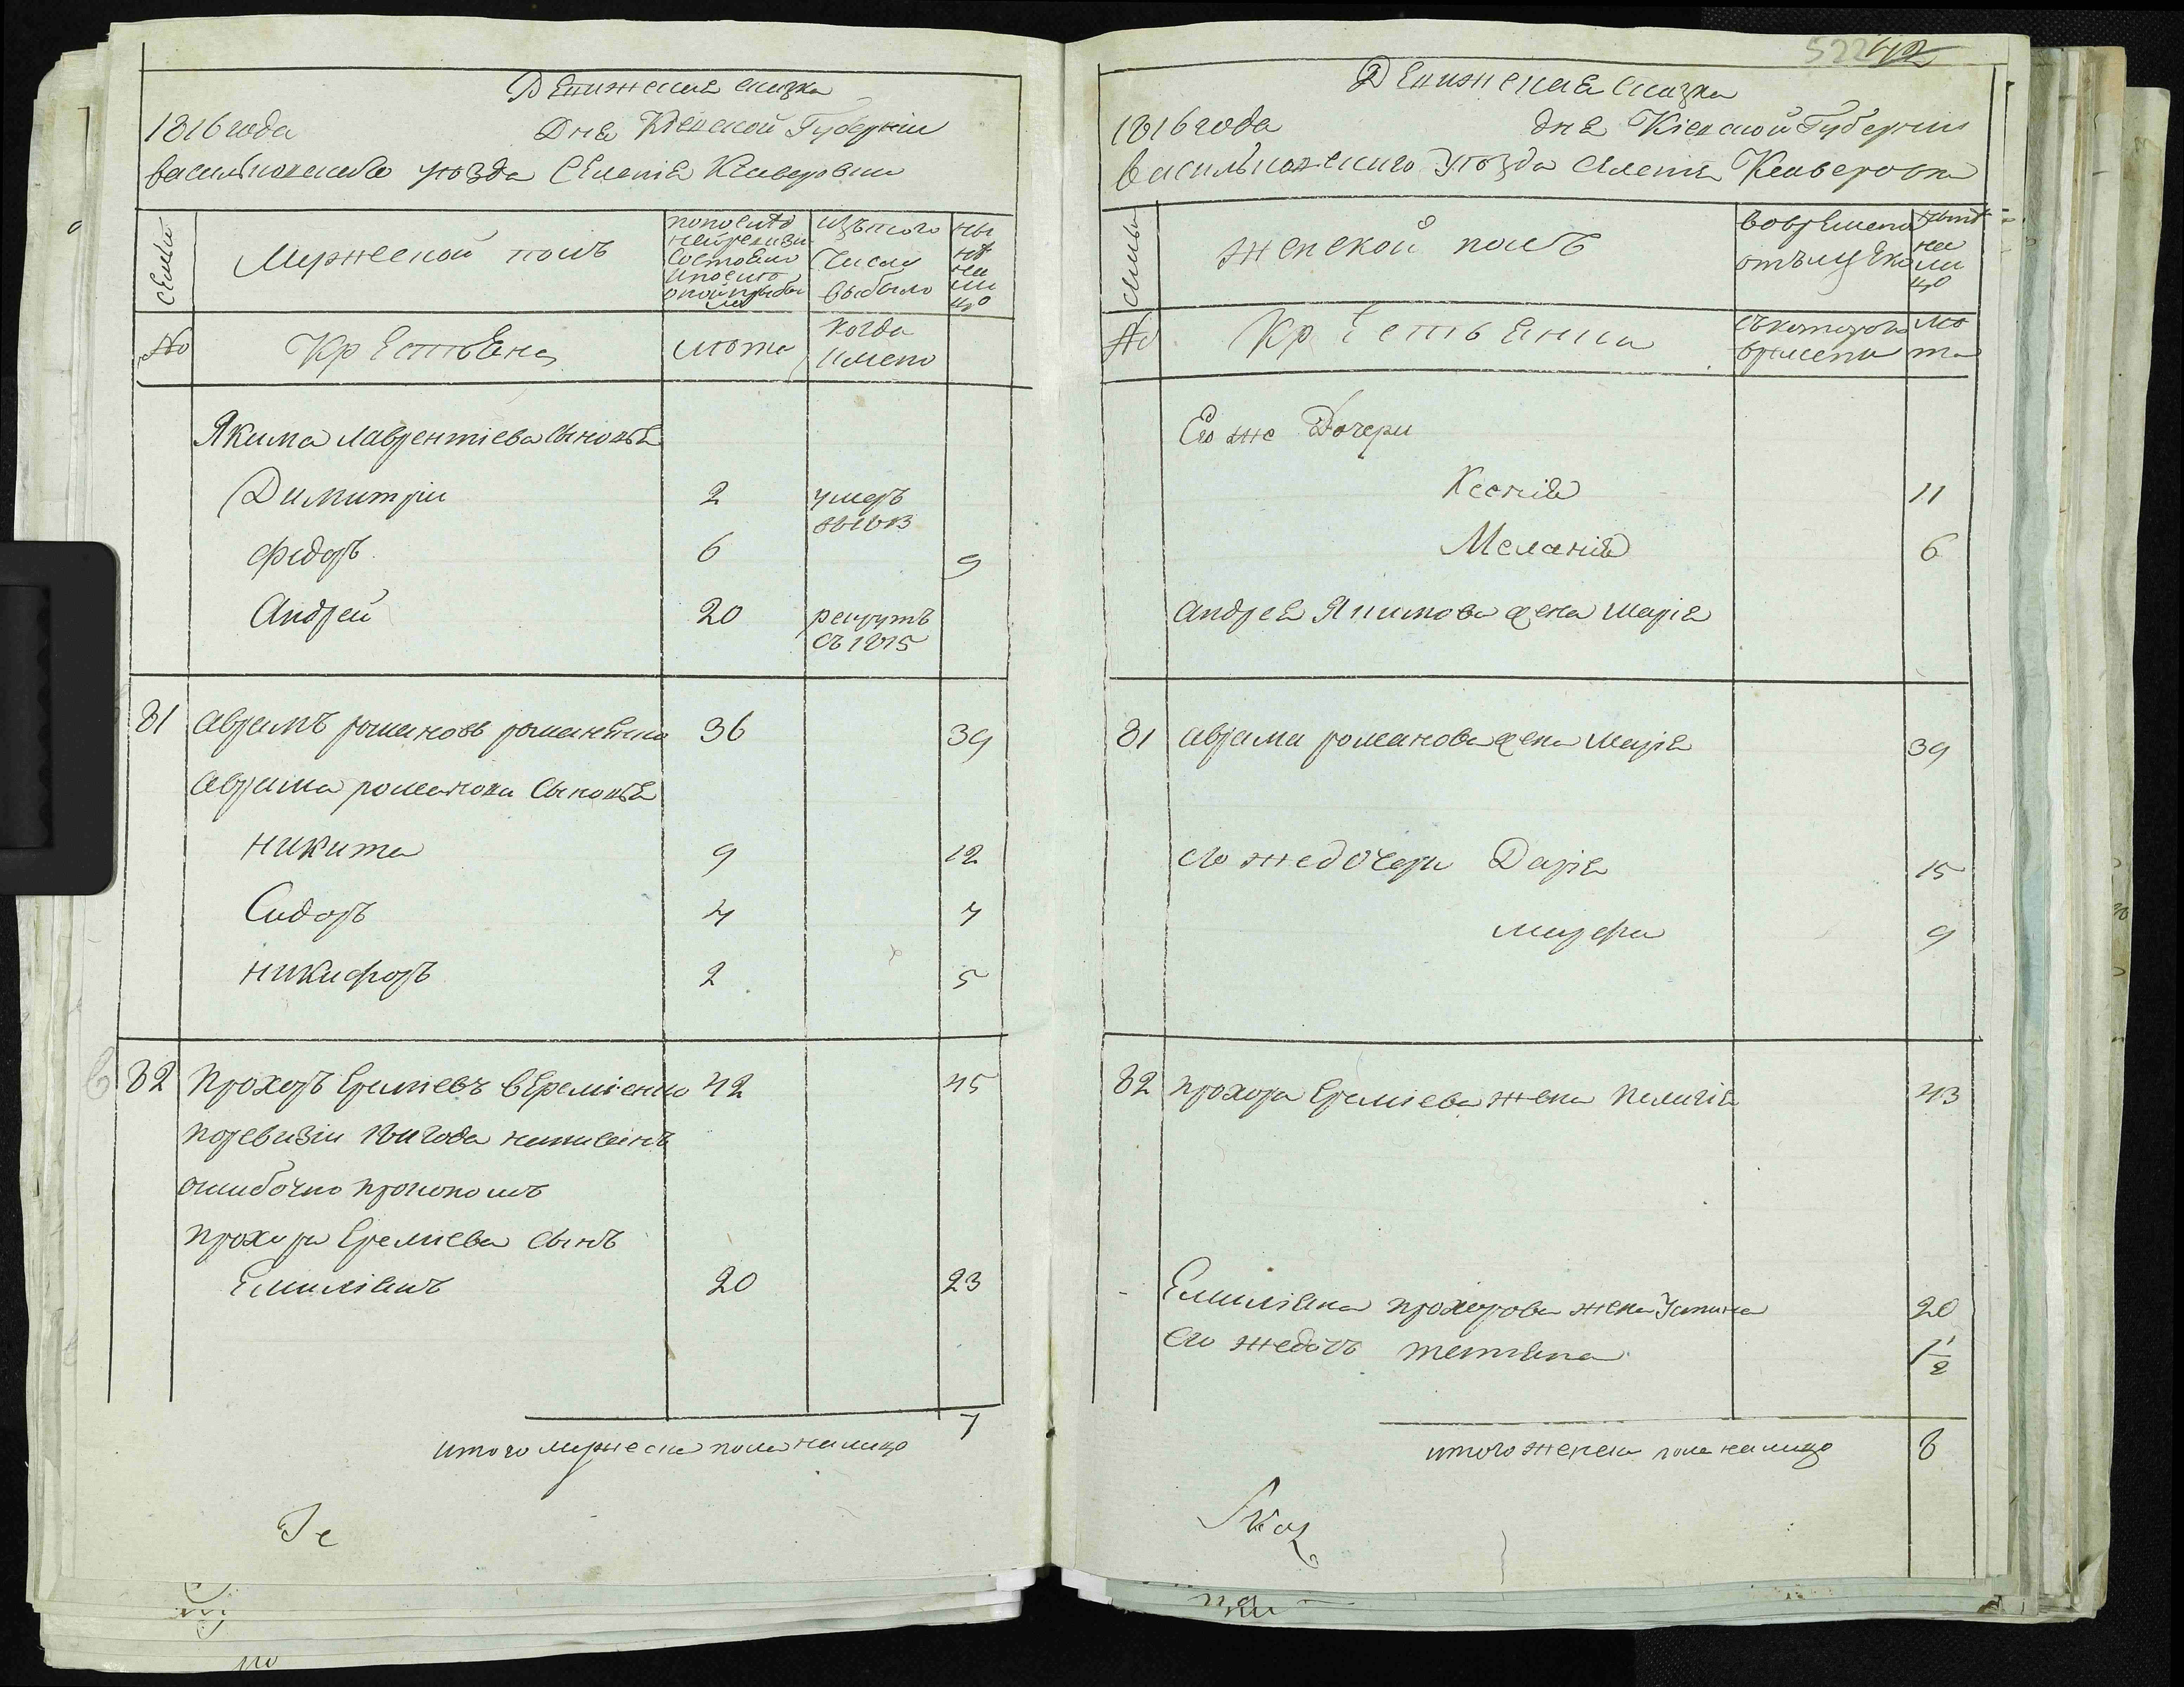 Ревижская сказка
1816 года Дня Кіевской Губерніи
васильковскаго уезда Селенія Ксаверовки
Семьи
Мужеской полъ
по последней ревизіи состояло и после оной прибыло
Изъ того Числа выбыло
ныне на лицо
№
Крестьяне
лета
Когда Имено
Якима лаврентіева сыновья
Димитрій 2 умеръ въ 1813
Федоръ 6 9
Андрей 20 рекрутъ съ 1815
81 аврамъ романовъ романенко 36 39
аврама романова сыновья
никита 9 12
Сидоръ 4 7
никифоръ 2 5
82 прохоръ Еремievъ вЕреміенко 42 45
поревизіи 1811 года написанъ
ошибочно прокопомъ
прохора Ереміева сынъ
Емиліянъ 20 23
итого мужеска пола налицо 7
Ге
522
Ревижская сказка
1816 года дня Кіевской Губерніи
Васильковскаго Уезда Селенія Ксаверовки
Семьи
женской полъ
вовременной отълучке
ныне на лицо
№
Крестьянки
съкоторого времени
лета
Его же Дочери
Ксенія 11
Меланія 6
андрея Якимова жена Марія
81 аврама романова жена Марія 39
его жедочери Дарія 15
марфа 9
82 прохора Ереміева жена пелагія 43
Емиліяна прохорова жена Устина 20
его жедочь татіяна 1 1/2
итого женска пола налицо 8
Сказ